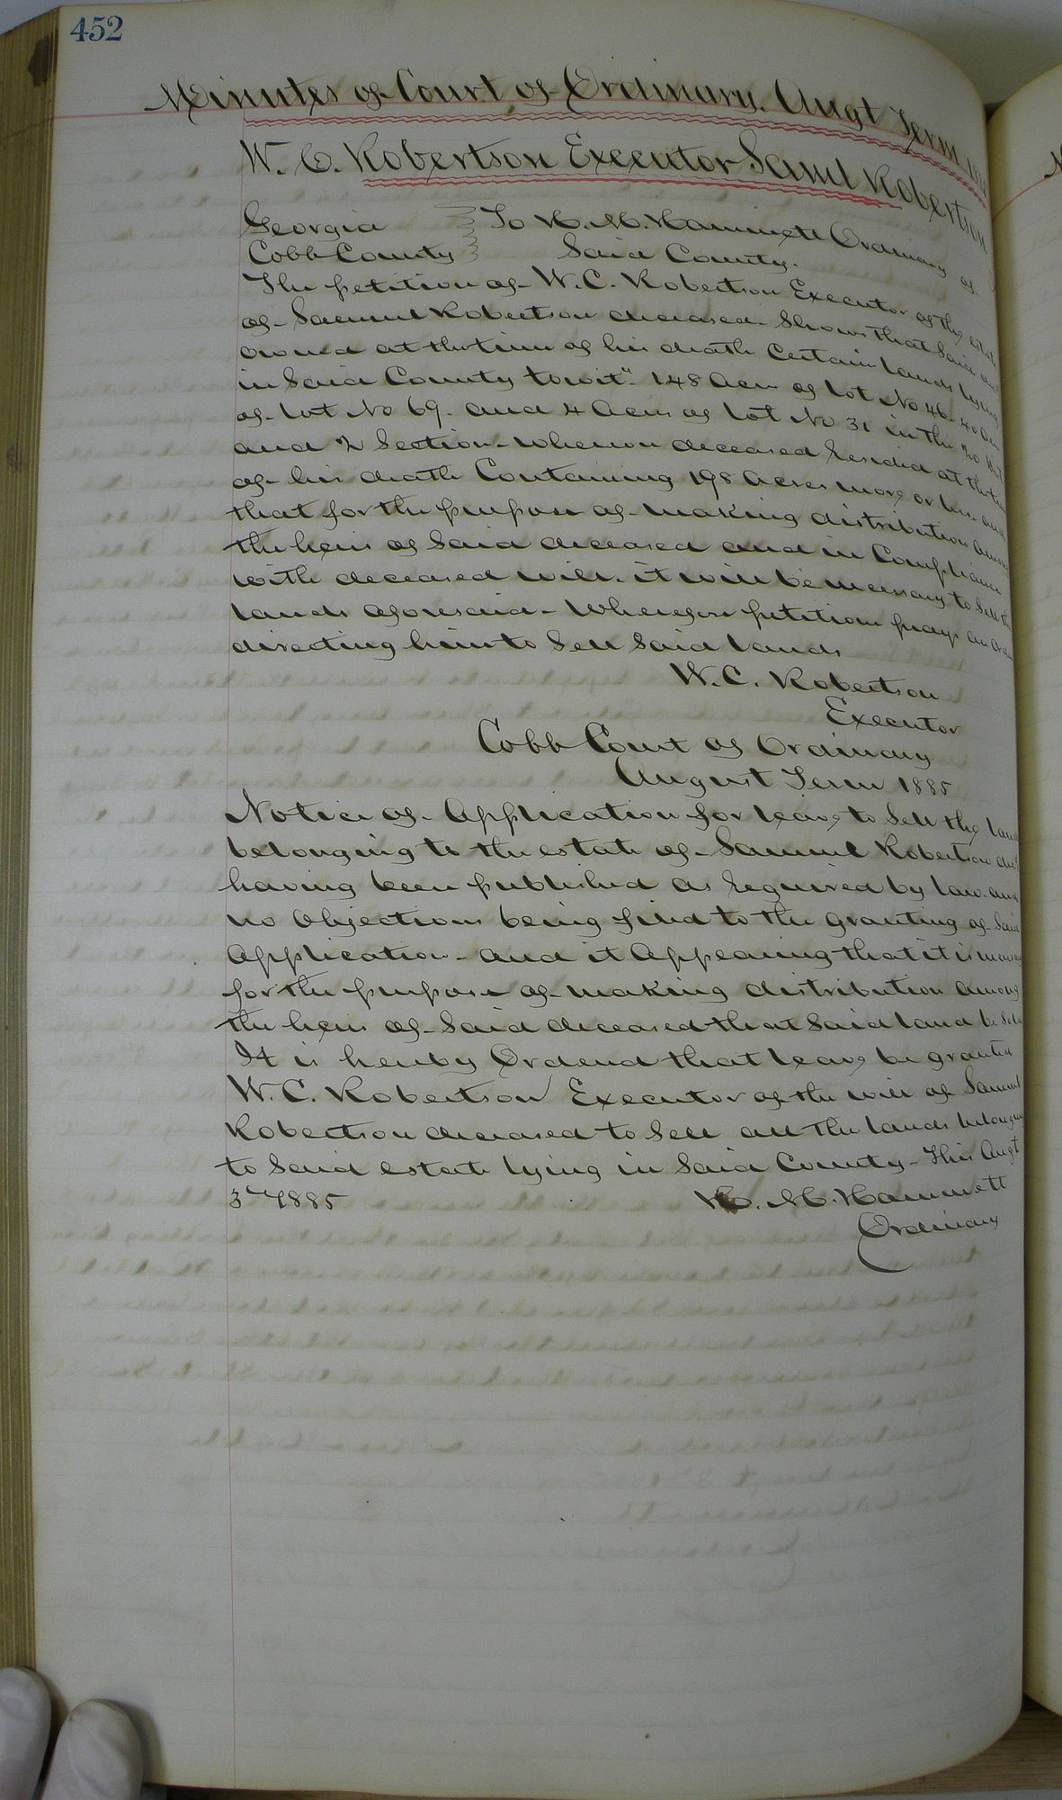 452
Minutes of Court of Ordinary. Augt Term
W. C. Robertson Executor Saml Robertson
Georgia To H. M. Hammett Ordinary of
Cobb County Said County.
The petition of W. C. Robertson Executor of the
of Samuel Robertson deceased Shows that Said
owned at the time of his death Certain lands lying
in Said County towit" 148 Acres of Lot No 46. 40
of Lot No 69. and 4 Acres of Lot No 31 in the 20
and 2 Section - Whereon deceased resided at the
of his death Containing 198 Acres more or less
that for the purpose of making distribution
the heirs of Said deceased and in Compliance
with deceased will. it will be necessary to Sell
lands aforesaid - Wherefore petition prays an
directing him to Sell Said lands
W. C. Robertson
Executor
Cobb Court of Ordinary
August Term 1885
Notice of Application for leave to Sell the
belonging to the estate of Samuel Robertson
having been published as required by law. and
no Objections being filed to the granting of Said
Application - and it Appearing that it is
for the purpose of making distribution among
the heirs of Said deceased that Said land be
It is hereby Ordered that leave be granted
W. C. Robertson Executor of the will of Samuel
Robertson deceased to Sell all the lands belonging
to Said estate lying in Said County - This Augt
3rd 1885 H. M. Hammett
Ordinary